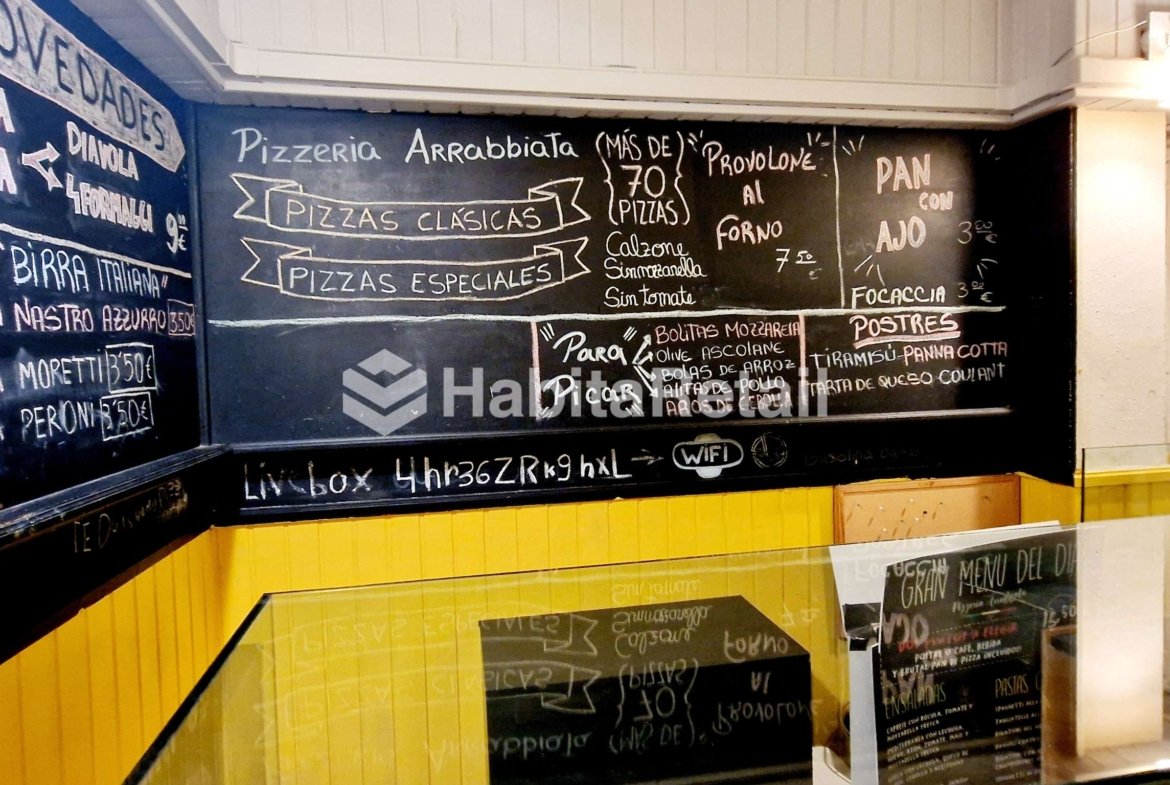 OVEDADES
DIAVOLA
4FORMAGGI
9'50€
"BIRRA ITALIANA"
NASTRO AZZURRO 3'50€
MORETTI 3'50€
PERONI 3'50€
Pizzeria Arrabbiata
PIZZAS CLÁSICAS
PIZZAS ESPECIALES
(MÁS DE
70
PIZZAS)
Calzone
Sinmozzarella
Sin tomate
PROVOLONE
Al
FORNO
7'50€
PAN
CON
AJO
3'00€
FOCACCIA 3'00€
Para
Picar
BOLITAS MOZZARELLA
OLIVE ASCOLANE
BOLAS DE ARROZ
ALITAS DE POLLO
AROS DE CEBOLLA
POSTRES
TIRAMISÚ-PANNA COTTA
TARTA DE QUESO-COULANT
HabitaRetail
Livebox 4hr36ZRkghxL → WiFi
GRAN MENU DEL DIA
POSTRE O CAFÉ, BEBIDA
Y BRUTAL PAN DE PIZZA INCLUIDO!
ENSALADAS
PASTAS